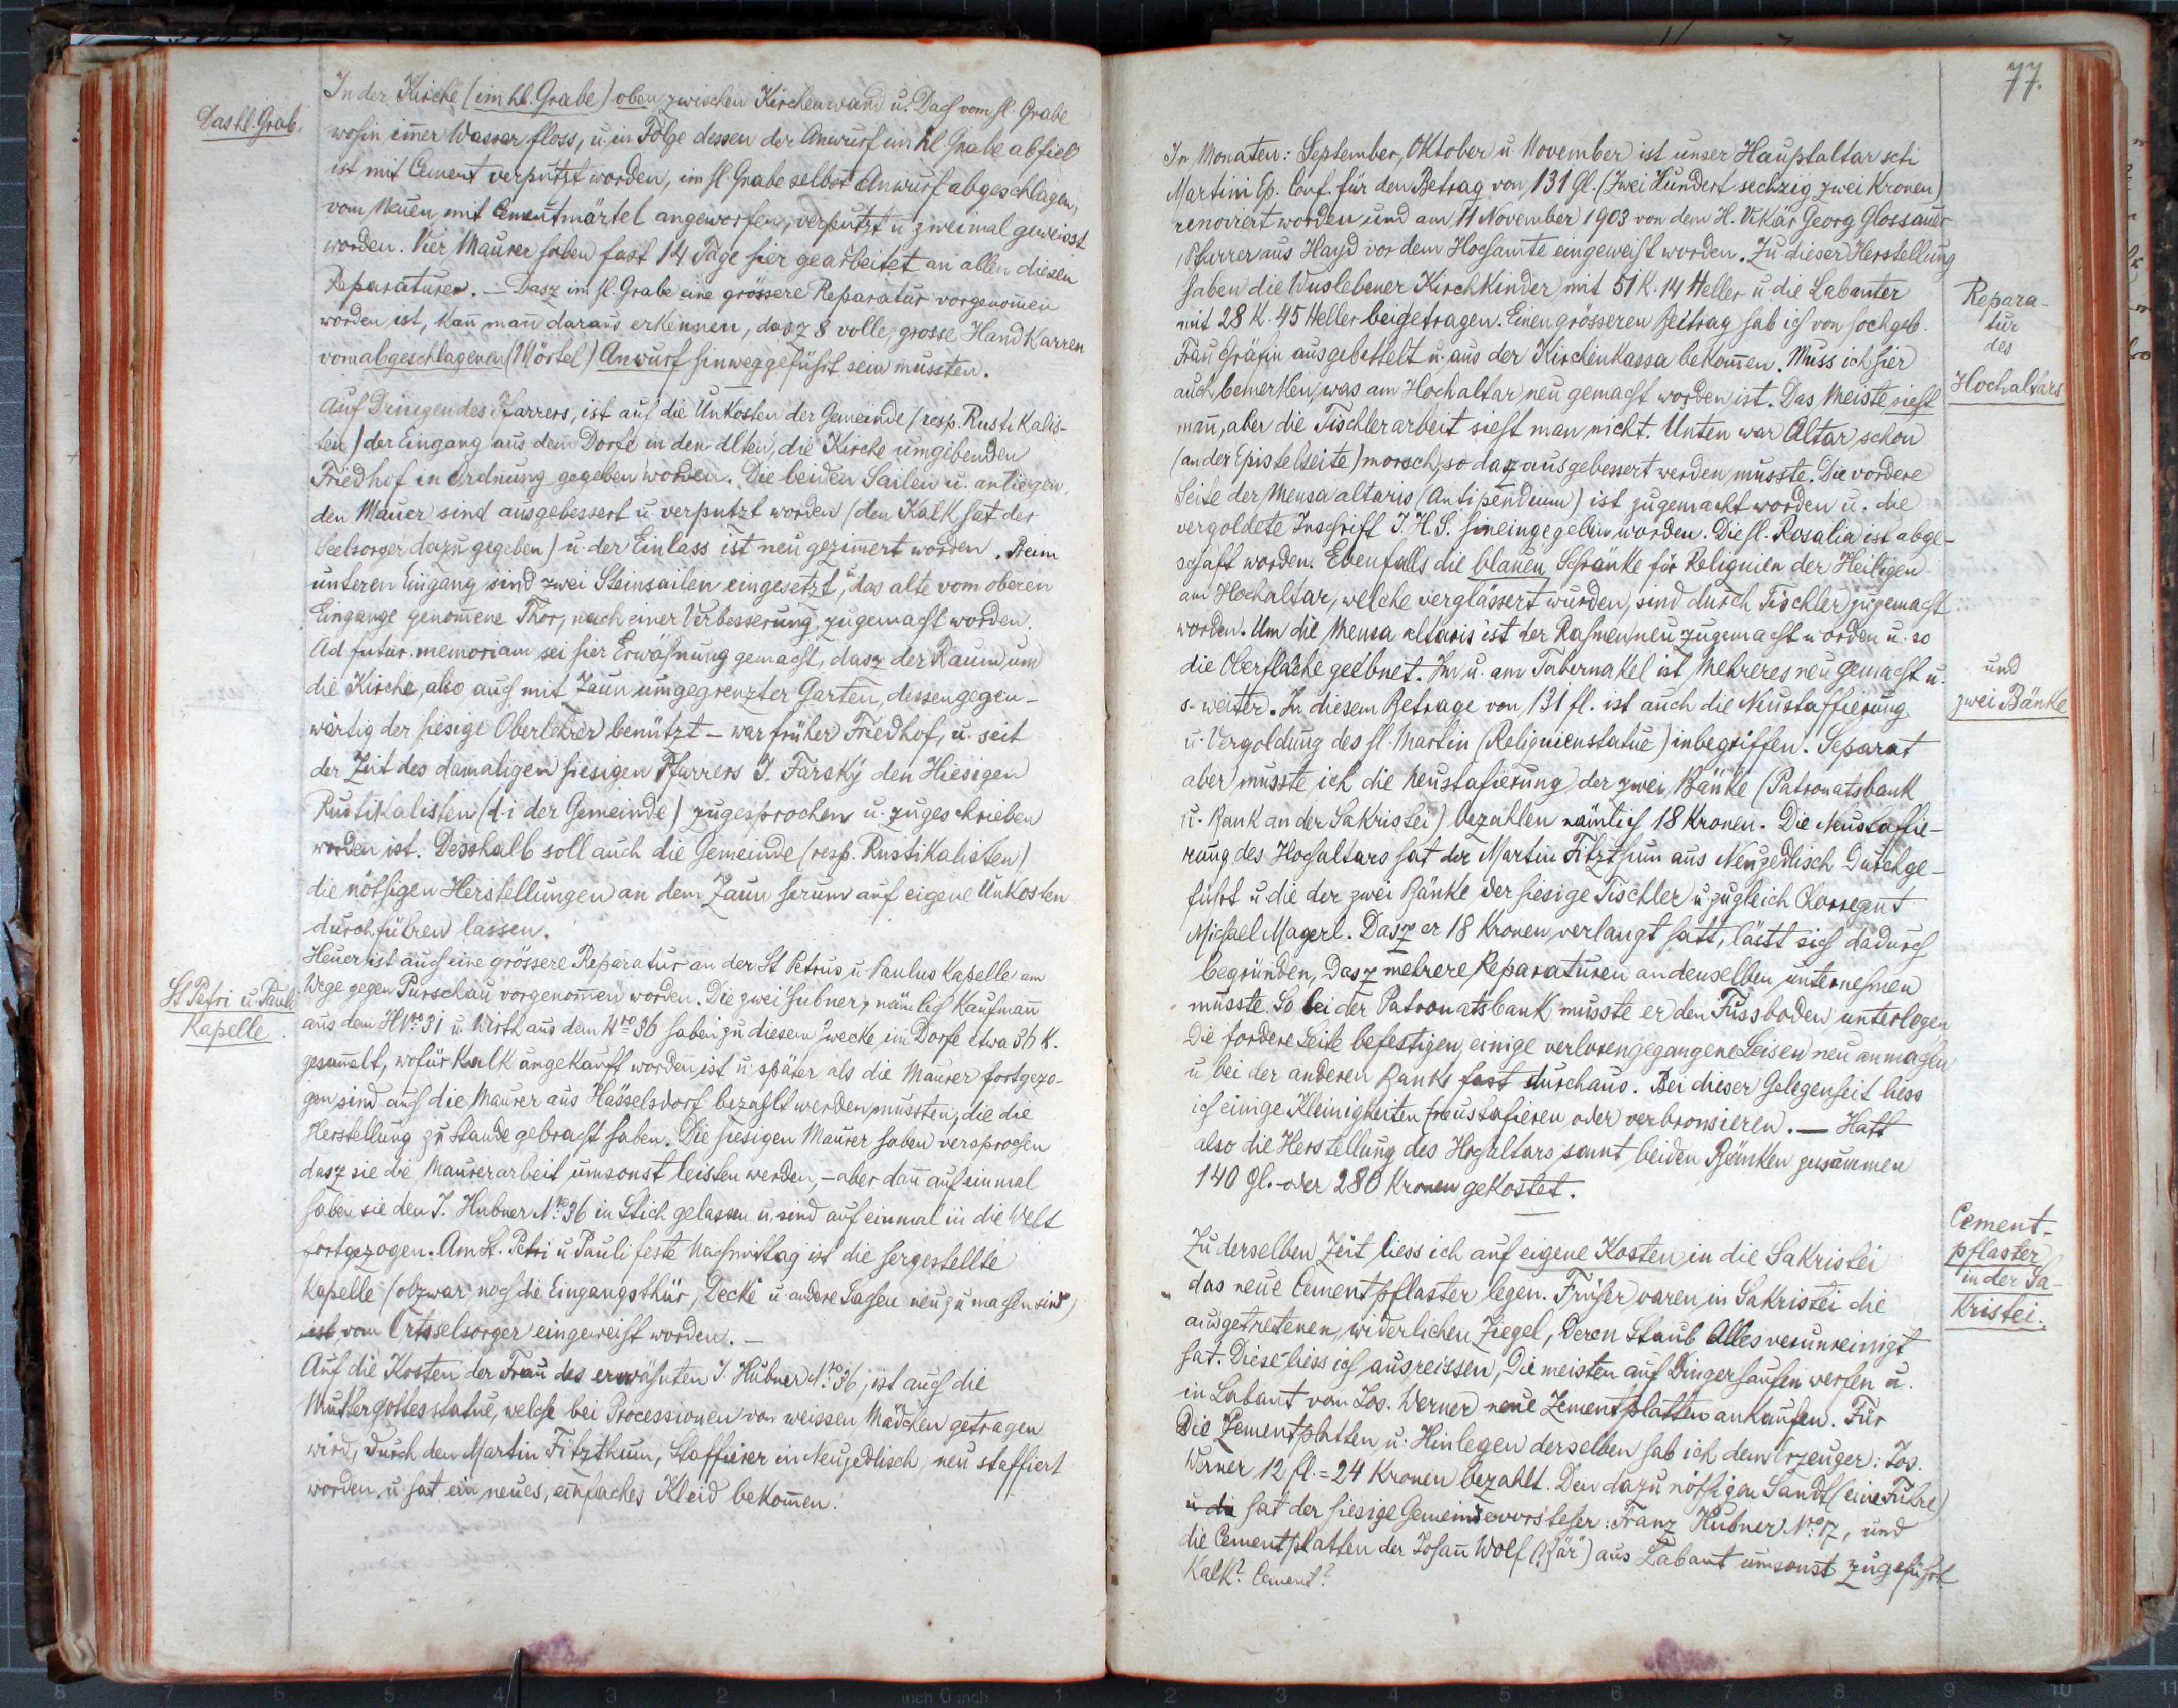 Das hl. Grab.
In der Kirche (im hl. Grabe) oben zwischen Kirchenwand u. Dach vom hl. Grabe
wohin im̄er Wasser floss, u. in Folge dessen der Anwurf im hl. Grabe abfiel
ist mit Cement verputzt worden, im hl. Grabe selbst Anwurf abgeschlagen,
vom Neuen mit Cementmörtel angeworfen, verputzt u zweimal geweisst
worden. Vier Maurer haben fast 14 Tage hier gearbeitet an allen diesen
Reparaturen. — Dasz im hl. Grabe eine grössere Reparatur vorgenom̄en
worden ist, kan̄ man daraus erkennen, dasz 8 volle, grosse Handkarren
vom abgeschlagenen (Mörtel) Anwurf hinweggeführt sein mussten.
Auf Dringen des Pfarrers, ist auf die Unkosten der Gemeinde (resp. Rustikalis-
ten) der Eingang aus dem Dorfe in den alten, die Kirche umgebenden
Friedhof in Ordnung gegeben worden. Die beiden Sailen u. anliegen-
den Mauer sind ausgebessert u verputzt worden (den Kalk hat der
Seelsorger dazu gegeben) u. der Einlass ist neu gezim̄ert worden. Beim
unteren Eingang sind zwei Steinsailen eingesetzt, u. das alte vom oberen
Eingange genom̄ene Thor, nach einer Verbesserung, zugemacht worden.
Ad futur. memoriam sei hier Erwähnung gemacht, dasz der Raum um
die Kirche, also auch mit Zaun umgegrenzter Garten, dessen gegen-
wärtig der hiesige Oberlehrer benützt – war früher Friedhof, u. seit
der Zeit des damaligen hiesigen Pfarrers J. Farský den Hiesigen
Rustikalisten (d. i der Gemeinde) zugesprochen u. zugeschrieben
worden ist. Desshalb soll auch die Gemeinde (resp. Rustikalisten)
die nöthigen Herstellungen an dem Zaun herum auf eigene Unkosten
durchführen lassen.
St Petri u. Pauli
Kapelle.
Heuer ist auch eine grössere Reparatur an der St Petrus u. Paulus Kapelle am
Wege gegen Purschau vorgenom̄en worden. Die zwei Hubner, nämlich Kaufman̄
aus dem HNro 31 u. Wirth aus dem Nro 36 haben zu diesem Zwecke im Dorfe etwa 36 K.
gesam̄elt, wofür Kalk angekauft worden ist u. später als die Maurer fortgezo-
gen sind auch die Maurer aus Hässelsdorf bezahlt werden mussten, die die
Herstellung zu Stande gebracht haben. Die hiesigen Maurer haben versprochen
dasz sie die Maurerarbeit umsonst leisten werden, – aber dan̄ auf einmal
haben sie den J. Hubner No 36 in Stich gelassen u. sind auf einmal in die Welt
fortgezogen. Am St. Petri u Pauli feste Nachmittag ist die hergestellte
Kapelle (obzwar noch die Eingangsthür, Decke u. andere Sachen neu zu machen sind)
ist vom Ortsselsorger eingeweiht worden. —
Auf die Kosten der Frau des erwähnten J. Hubner No 36, ist auch die
Muttergottesstatue, welche bei Processionen von weissen Mädchen getragen
wird, durch den Martin Fitzthum, Staffierer in Neuzedlisch, neu staffiert
worden u. hat ein neues, einfaches Kleid bekom̄en.
77.
In Monaten: September, Oktober u. November ist unser Hauptaltar scti
Martini Ep. Conf. für den Betrag von 131 Gl. (zwei Hundert sechzig zwei Kronen)
renoviert worden und am 11 November 1903 von dem H. Vikär Georg Glossauer
, Pfarrer aus Hayd vor dem Hochamte eingeweiht worden. Zu dieser Herstellung
haben die Wuslebener Kirchkinder mit 51 K. 14 Heller u. die Labanter
mit 28 K. 45 Heller beigetragen. Einen grösseren Beitrag hab ich von hochgeb.
Frau Gräfin ausgebettelt u. aus der Kirchenkassa bekom̄en. Muss ich hier
auch bemerken, was am Hochaltar neu gemacht worden ist. Das Meiste sieht
man̄, aber die Tischlerarbeit sieht man nicht. Unten war Altar schon
(an der Epistelseite) morsch, so dasz ausgebessert werden musste. Die vordere
Seite der Mensa altaris (Antipendium) ist zugemacht worden u. die
vergoldete Inschrift J. H. S. hineingegeben worden. Die hl. Rosalia ist abge-
schaft worden. Ebenfalls die blauen Schränke für Reliquien der Heiligen
am Hochaltar, welche verglässert wurden, sind durch Tischler zugemacht
worden. Um die Mensa altaris ist der Rahmen neu zugemacht worden u. so
die Oberfläche geebnet. Im u. am Tabernakel ist Mehreres neu gemacht u.
s. weiter. In diesem Betrage von 131 fl. ist auch die Neustaffierung
u. Vergoldung des hl. Martin (Reliquienstatue) inbegriffen. Separat
aber musste ich die Neustafierung der zwei Bänke (Patronatsbank
u. Bank an der Sakristei) bezahlen nämlich 18 Kronen. Die Neustaffie-
rung des Hochaltars hat der Martin Fitzthum aus Neuzedlisch durchge-
führt u die der zwei Bänke der hiesige Tischler u. zugleich Chorregent
Michael Magerl. Dasz er 18 Kronen verlangt hatt, lässt sich dadurch
begründen, dasz mehrere Reparaturen an denselben unternehmen
musste. So bei der Patronatsbank musste er den Fussboden unterlegen
die fordere Seite befestigen, einige verlorengegangene Leisen neu anmachen
u bei der anderen Bank fast durchaus. Bei dieser Gelegenheit liess
ich einige Kleinigkeiten neustafieren oder verbronsieren. — Hatt
also die Herstellung des Hochaltars samt beiden Bänken zusammen
140 Gl. oder 280 Kronen gekostet.
Repara-
tur
des
Hochaltars
und
zwei Bänke
Zu derselben Zeit liess ich auf eigene Kosten in die Sakristei
das neue Cementpflaster legen. Früher waren in Sakristei die
ausgetretenen, widerlichen Ziegel, deren Staub Alles verunreinigt
hat. Diese liess ich ausreissen, die meisten auf Düngerhaufen werfen u.
in Labant vom Jos. Werner neue Zementplatten ankaufen. Für
die Zementplatten u. Hinlegen derselben hab ich dem Erzeuger: Jos.
Werner 12 fl. = 24 Kronen bezahlt. Den dazu nöthigen Sandt (eine Fuhre)
u die hat der hiesige Gemeindevorsteher: Franz Hubner No 17, und
die Cementplatten der Johan̄ Wolf („Bär“) aus Labant umsonst zugeführt
Kalk? Cement?
Cement-
pflaster
in der Sa-
kristei.